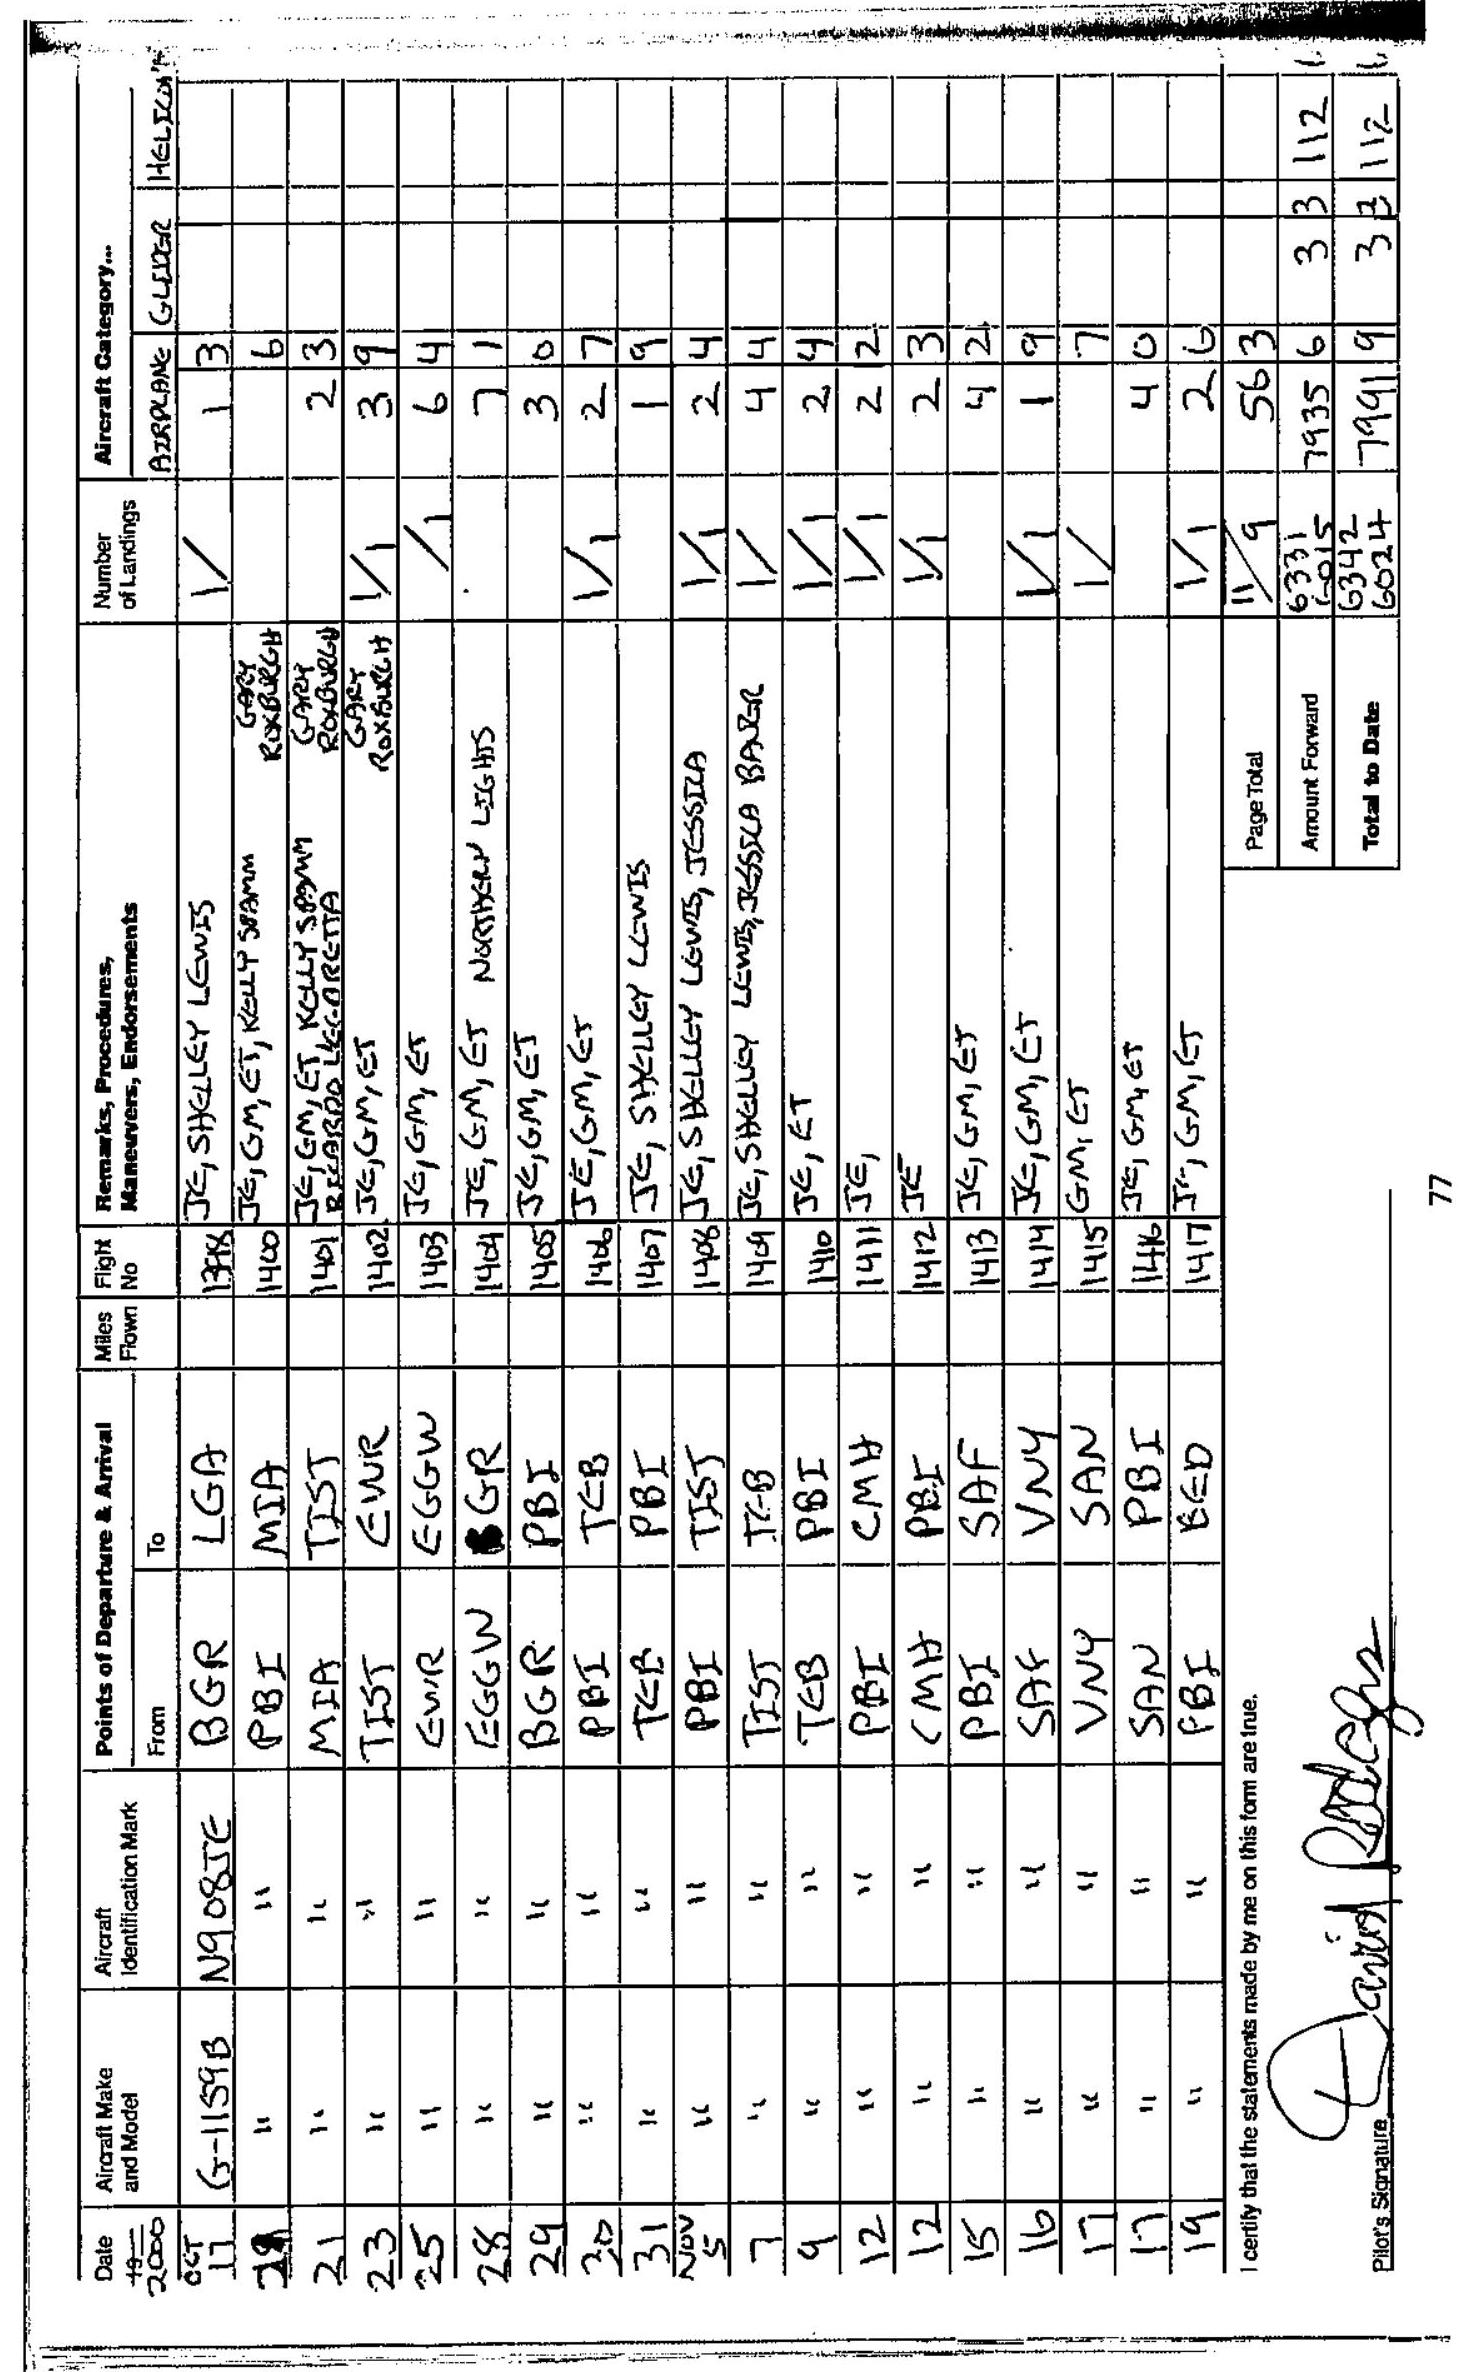 Date
19
2000
Aircraft Make
and Model
Aircraft
Identification Mark
Points of Departure & Arrival
From
To
Miles
Flown
Flight
No
Remarks, Procedures,
Maneuvers, Endorsements
Number
of Landings
Aircraft Category...
AIRPLANE GLIDER
OCT
17 G-1159B N908JE BGR LGA JE, SHELLEY LEWIS 1/ 1 3
" " PBI MIA 1400 JE, GM, ET, KELLY SPAMM GARY ROXBURGH 6
21 " " MIA TIST 1401 JE, GM, ET, KELLY SPAMM GARY ROXBURGH 2 3
RICARDO LEGORETTA
23 " " TIST EWR 1402 JE, GM, ET GARY ROXBURGH 1/1 3 9
25 " " EWR EGGW 1403 JE, GM, ET /1 6 4
28 " " EGGW BGR 1404 JE, GM, ET NORTHERN LIGHTS 7 1
29 " " BGR PBI 1405 JE, GM, ET 3 0
30 " " PBI TEB 1406 JE, GM, ET 1/1 2 7
31 " " TEB PBI 1407 JE, SHELLEY LEWIS 1 9
NOV
5 " " PBI TIST 1408 JE, SHELLEY LEWIS, JESSICA 1/1 2 4
7 " " TIST TEB 1409 JE, SHELLEY LEWIS, JESSICA 1/ 4 4
9 " " TEB PBI 1410 JE, ET 1/1 2 4
12 " " PBI CMH 1411 JE, 1/1 2 2
12 " " CMH PBI 1412 JE 1/1 2 3
15 " " PBI SAF 1413 JE, GM, ET 4 2
16 " " SAF VNY 1414 JE, GM, ET 1/1 1 9
17 " " VNY SAN 1415 GM, ET 1/ 7
17 " " SAN PBI 1416 JE, GM, ET 4 0
19 " " PBI BED 1417 JE, GM, ET 1/1 2 6
I certify that the statements made by me on this form are true.
Page Total 11/9 56 3
Amount Forward 6331 6015 7935 6 3 3 112
Total to Date 6342 6024 7991 9 3 112
Pilot's Signature David Rodgers
77